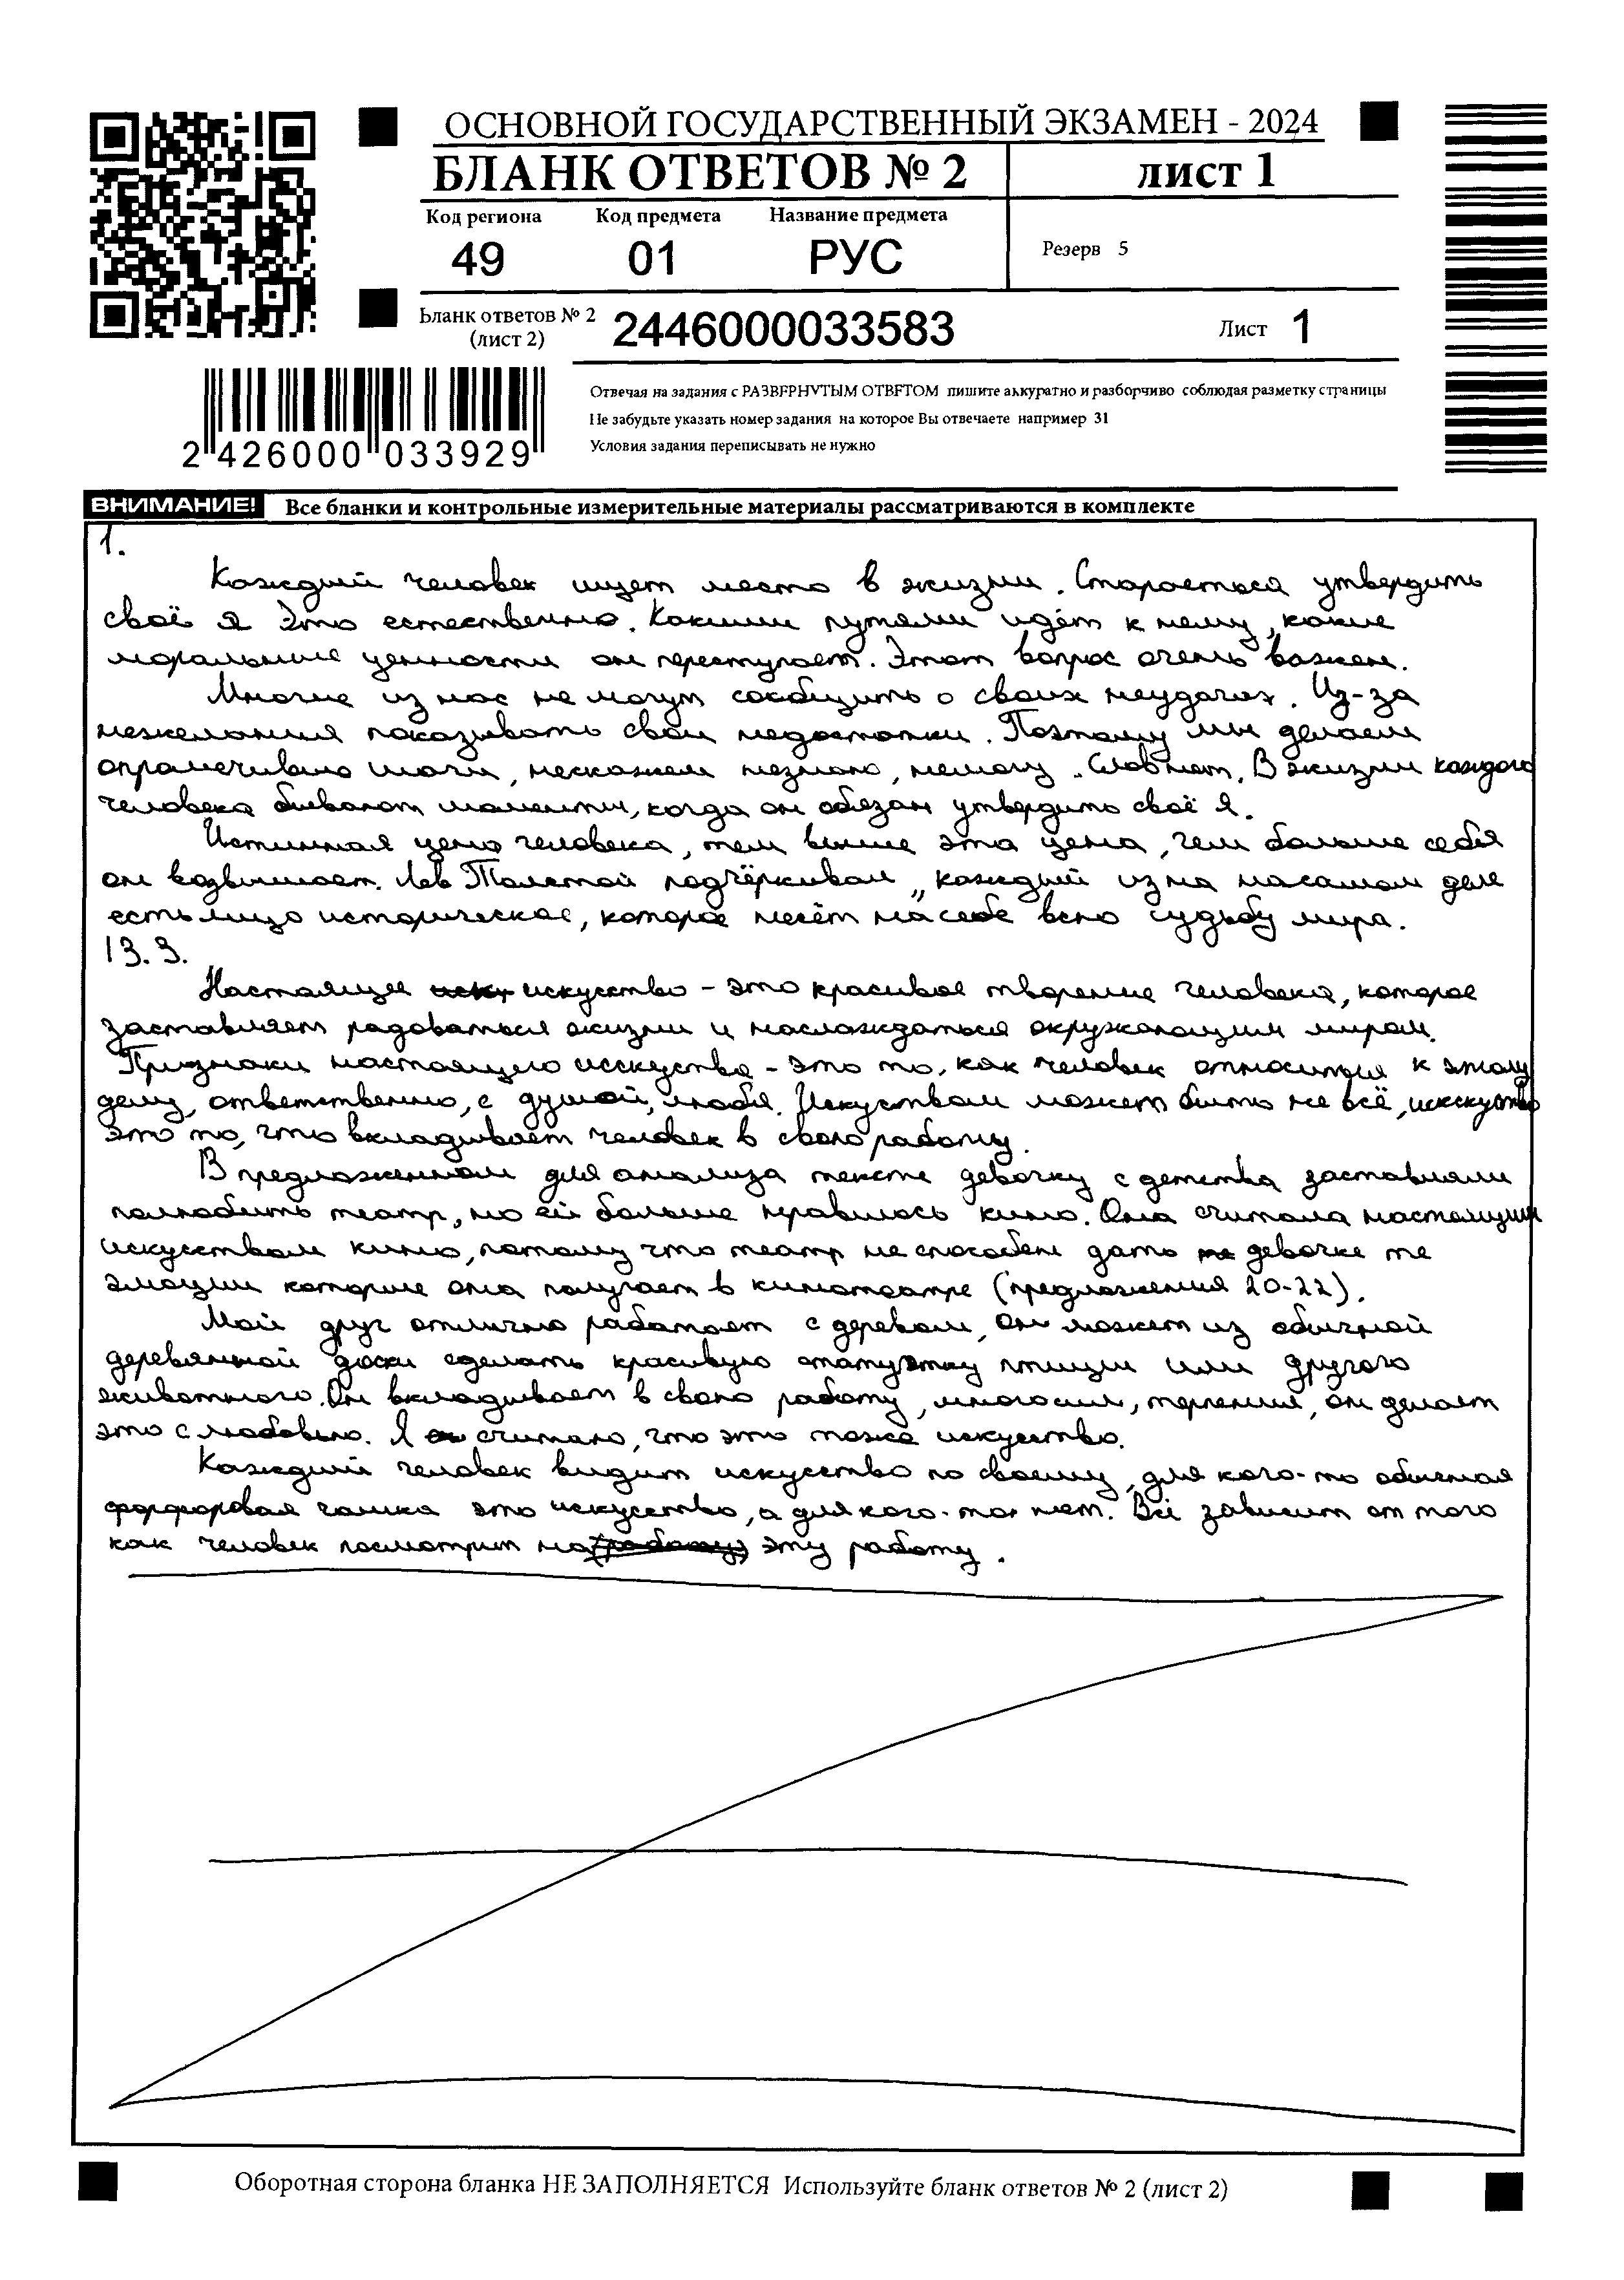 ОСНОВНОЙ ГОСУДАРСТВЕННЫЙ ЭКЗАМЕН - 2024
БЛАНК ОТВЕТОВ № 2
лист 1
Код региона Код предмета Название предмета
49 01 РУС
Резерв 5
Бланк ответов № 2
(лист 2)
2446000033583
Лист 1
Отвечая на задания с РАЗВЕРНУТЫМ ОТВЕТОМ пишите аккуратно и разборчиво соблюдая разметку страницы
Не забудьте указать номер задания на которое Вы отвечаете например 31
Условия задания переписывать не нужно
2 426000 033929
ВНИМАНИЕ! Все бланки и контрольные измерительные материалы рассматриваются в комплекте
1.
Каждый человек ищет место в жизни. Стараеться утвердить
своё я Это естественно. Какими путями идёт к нему, какие
моральные ценности он переступает. Этот вопрос очень важен.
Многие из нас не могут сообщить о своих неудачах. Из-за
нежелания показывать свои недостатки. Поэтому мы делаем
опрамечивыо шаги, нескажем незнаю, немогу. Слов нет. В жизни каждого
человека бывают моменты, когда он обязан утвердить своё я.
Истинная цена человека, тем выше эта цена, чем больше себя
он возвышает. Лев Толстой подчёркивал „каждый из на насамом деле
есть лицо историческое, которое несёт на себе всю судьбу мира.
13.3.
Настоящее иску искусство - это красивое творение человека, которое
заставляет радоваться жизни и наслаждаться окружающим миром.
Признаки настоящего исскуства - это то, как человек относиться к этому
делу, ответственно, с душой, любя. Искуством может быть не всё, исскуство
это то, что вкладывает человек в свою работу.
В предложенном для анализа тексте девочку с детства заставляли
полюбить театр, но ей больше нравилось кино. Она считала настоящим
искусством кино, потому что театр не способен дать те девочке те
эмоции которые она получает в кинотеатре (предложения 20-22).
Мой друг отлично работает с деревом, он может из обычной
деревянной доски сделать красивую статуэтку птицы или другого
животного. Он вкладывает в свою работу, многосил, терпения, он делает
это с любовью. Я считаю, что это тоже искусство.
Каждый человек видит искусство по своему, для кого-то обычная
форфоровая чашка это искусство, а для кого-то нет. Всё зависит от того
как человек посмотрит на (работу) эту работу.
Оборотная сторона бланка НЕ ЗАПОЛНЯЕТСЯ Используйте бланк ответов № 2 (лист 2)